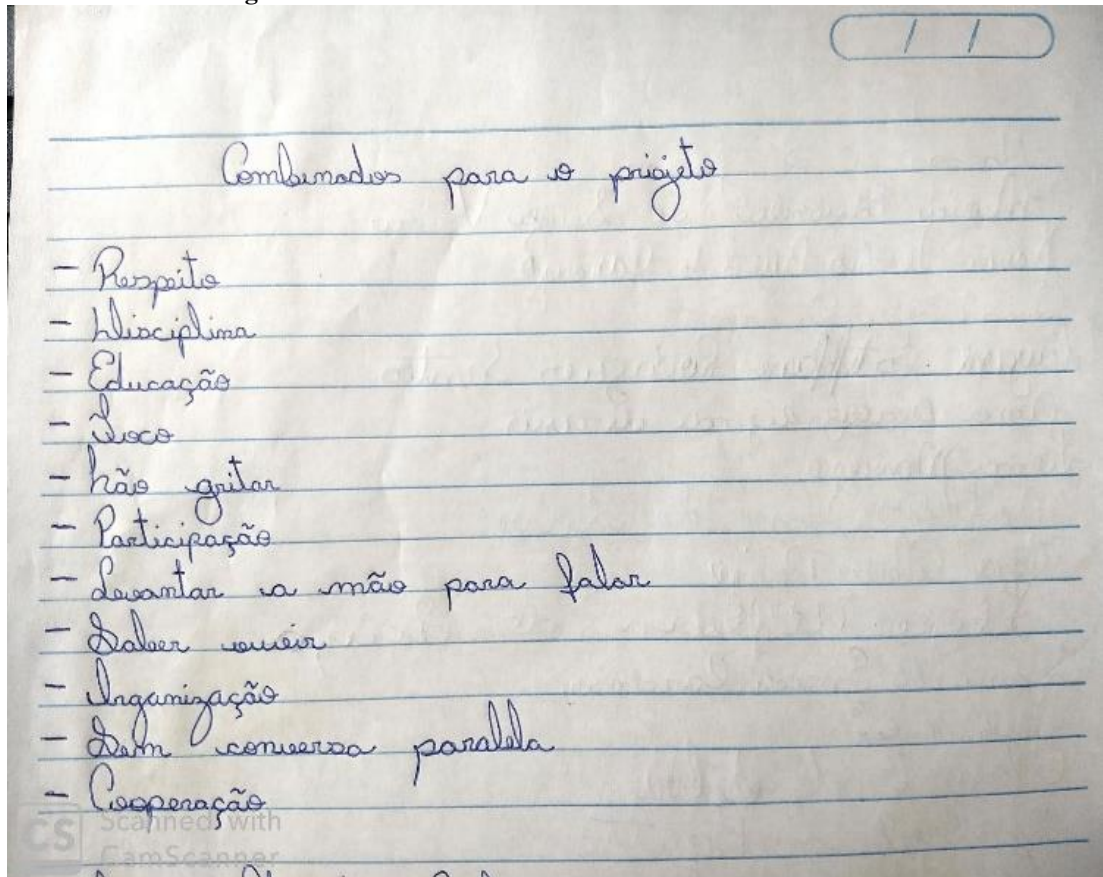 / /
Combinados para o projeto
- Respeito
- Disciplina
- Educação
- Foco
- Não gritar
- Participação
- Levantar a mão para falar
- Saber ouvir
- Organização
- Sem conversa paralela
- Cooperação
CS Scanned with
CamScanner